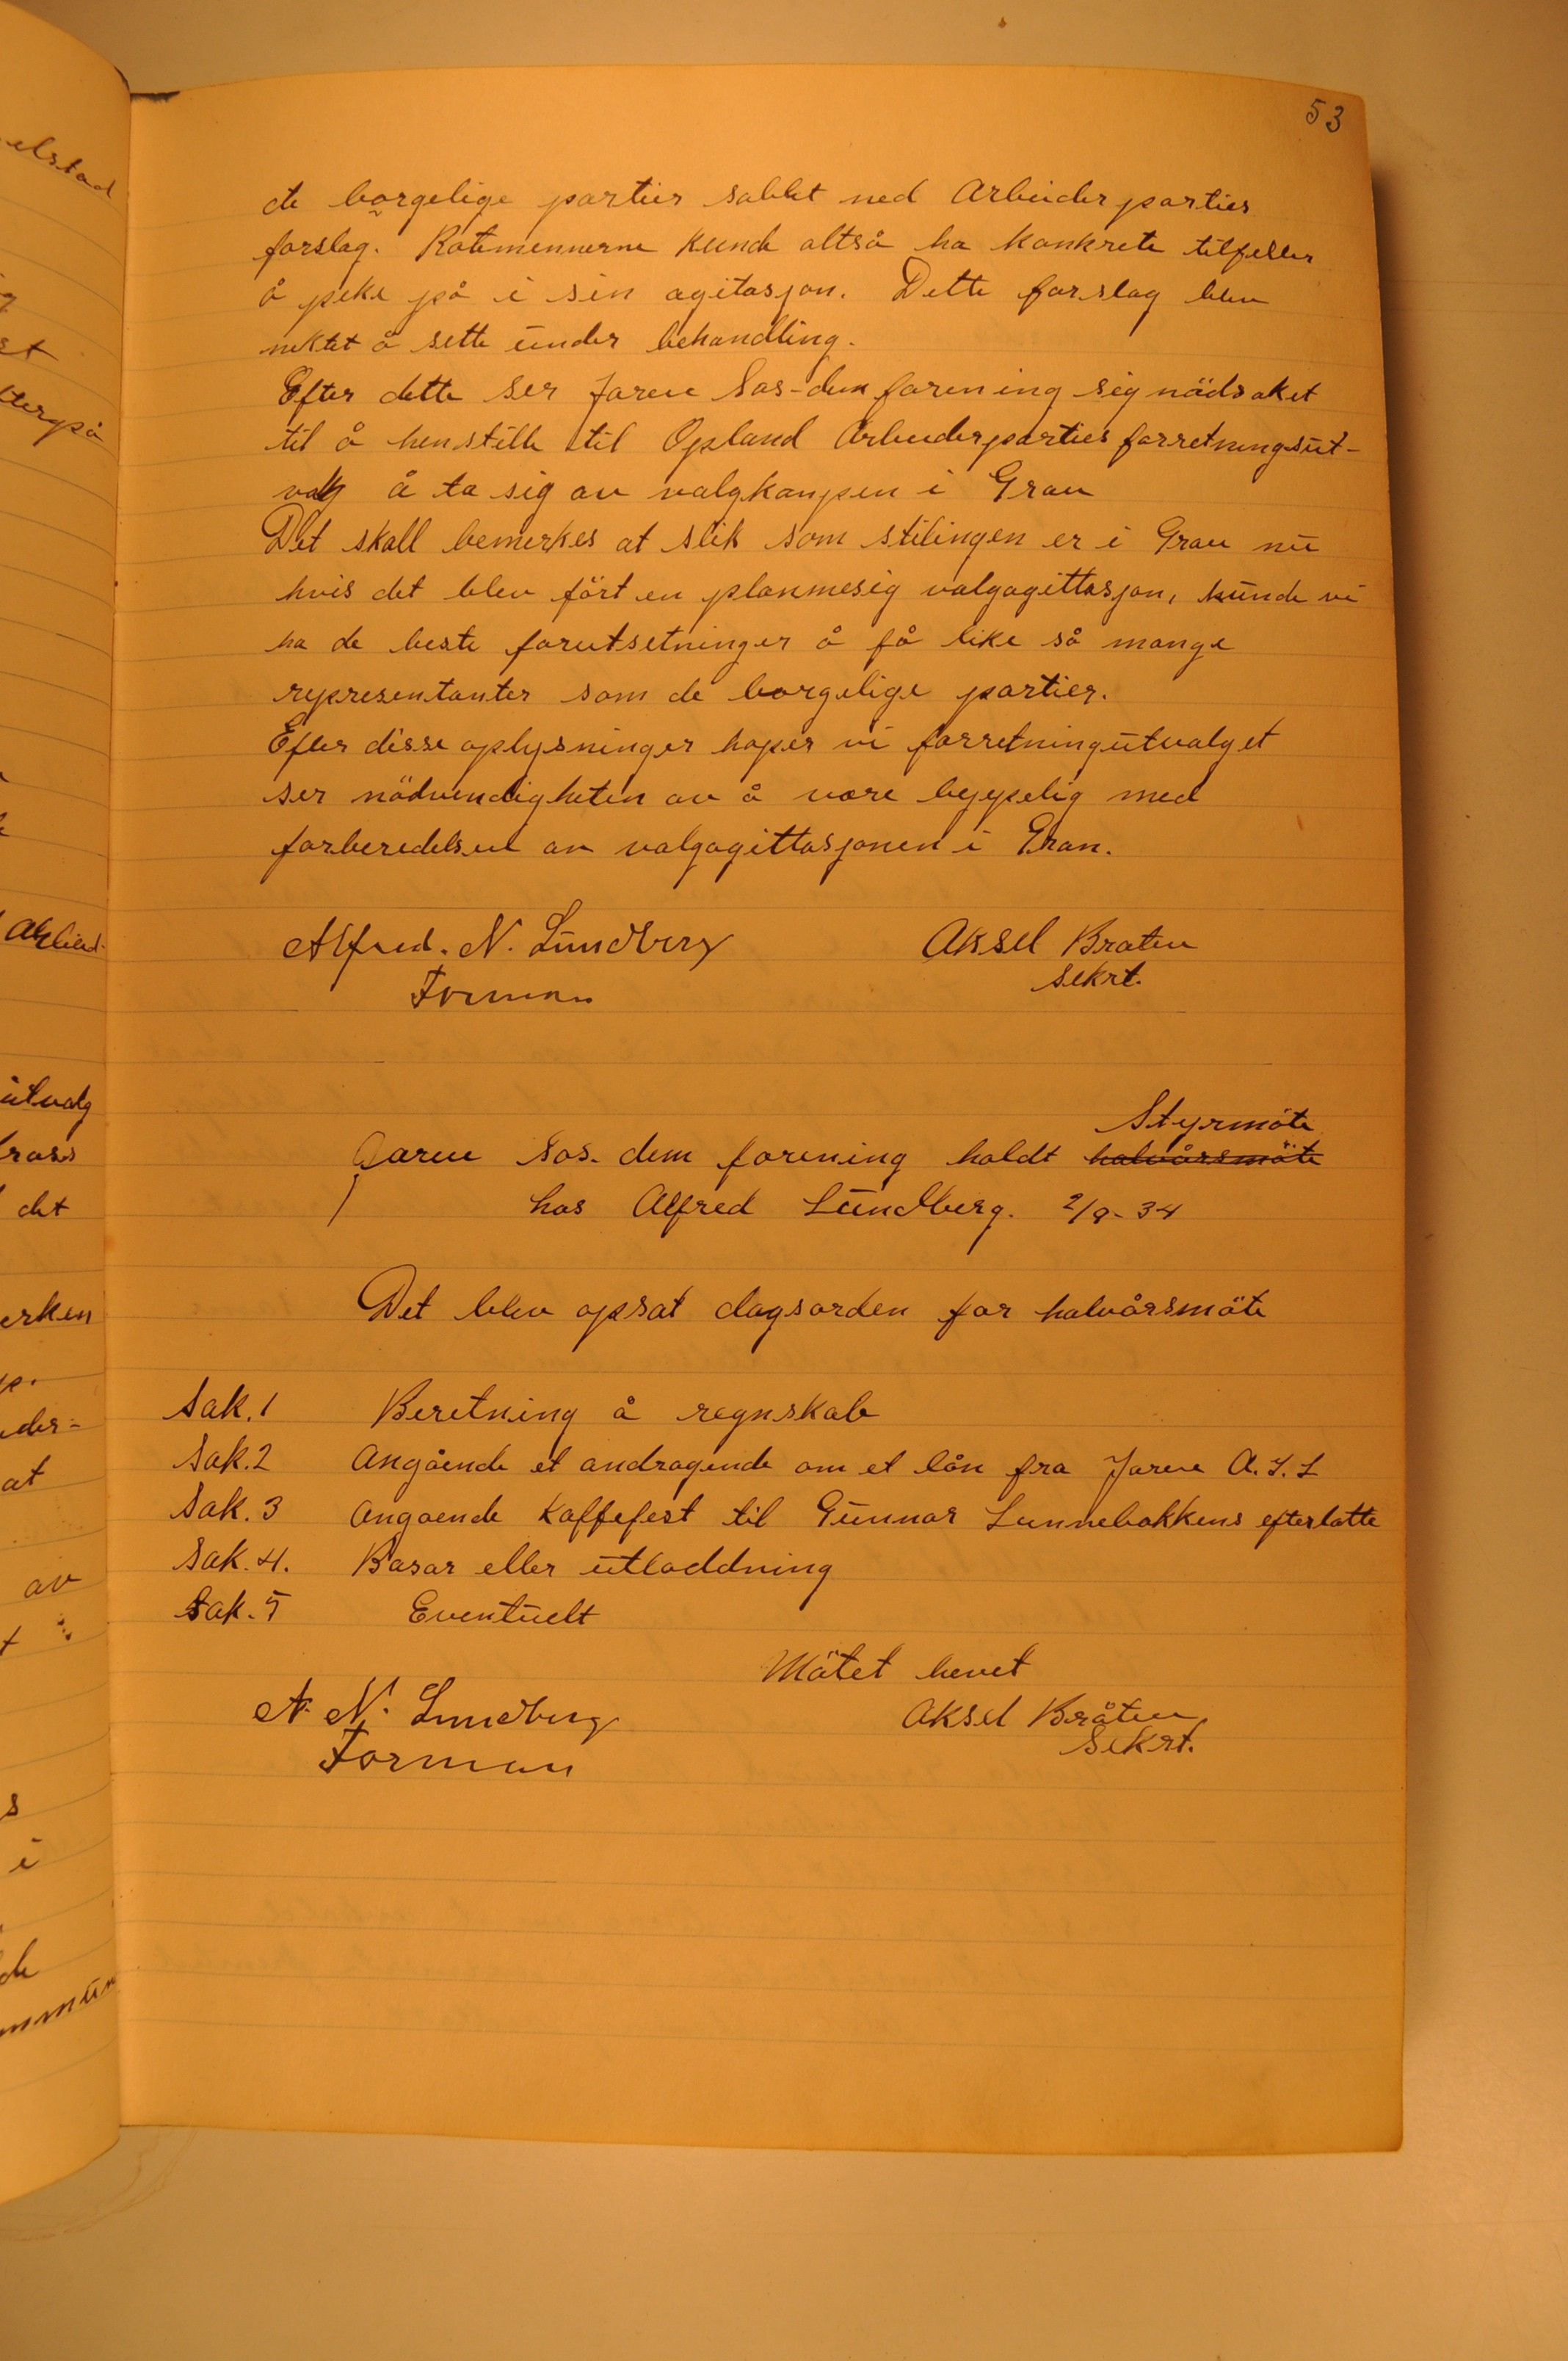 53
de borgelige partier sablet ned Arbeiderparties
forslag. Rotemennerne kunde altså ha konkrete tilfeller
å peke på i sin agitasjon. Dette forslag blev
nektet å sette under behandling.
Efter dette ser Jaren Sos-dem forening sig nödsaket
til å henstille til Opland Arbeiderparties forretningsut-
valg å ta sig av valgkampen i Gran
Det skall bemerkes at slik som stilingen er i Gran nu
hvis det blev fört en planmesig valgagittasjon, kunde vi
ha de beste forutsetninger å få like så mange
representanter som de borgelige partier.
Efter disse oplysninger håper vi forretningutvalget
ser nödvendigheten av å være
med
forberedelsen av valgagittasjonen i Gran.
Alfred. N. Lundberg
Forman
Aksel Bråten
sekrt.
Styrmöte
Jaren Sos. dem forening holdt halvårsmöte
hos Alfred Lundberg. 2/9-34
Det blev opsat dagsorden for halvårsmöte
Sak. 1 Beretning å regnskab
Sak. 2 Angående et andragende om et lån fra Jaren A.I.L
Sak. 3 Angående Kaffefest til Gunnar Lunnebakkens efterlatte
Sak. 4. Basar eller utloddning
Sak. 5 Eventuelt
Mötet hevet
A. N. Lundberg
Forman
Aksel Bråten
Sekrt.
elstad
utvalg
det
erken
at
av
s
i